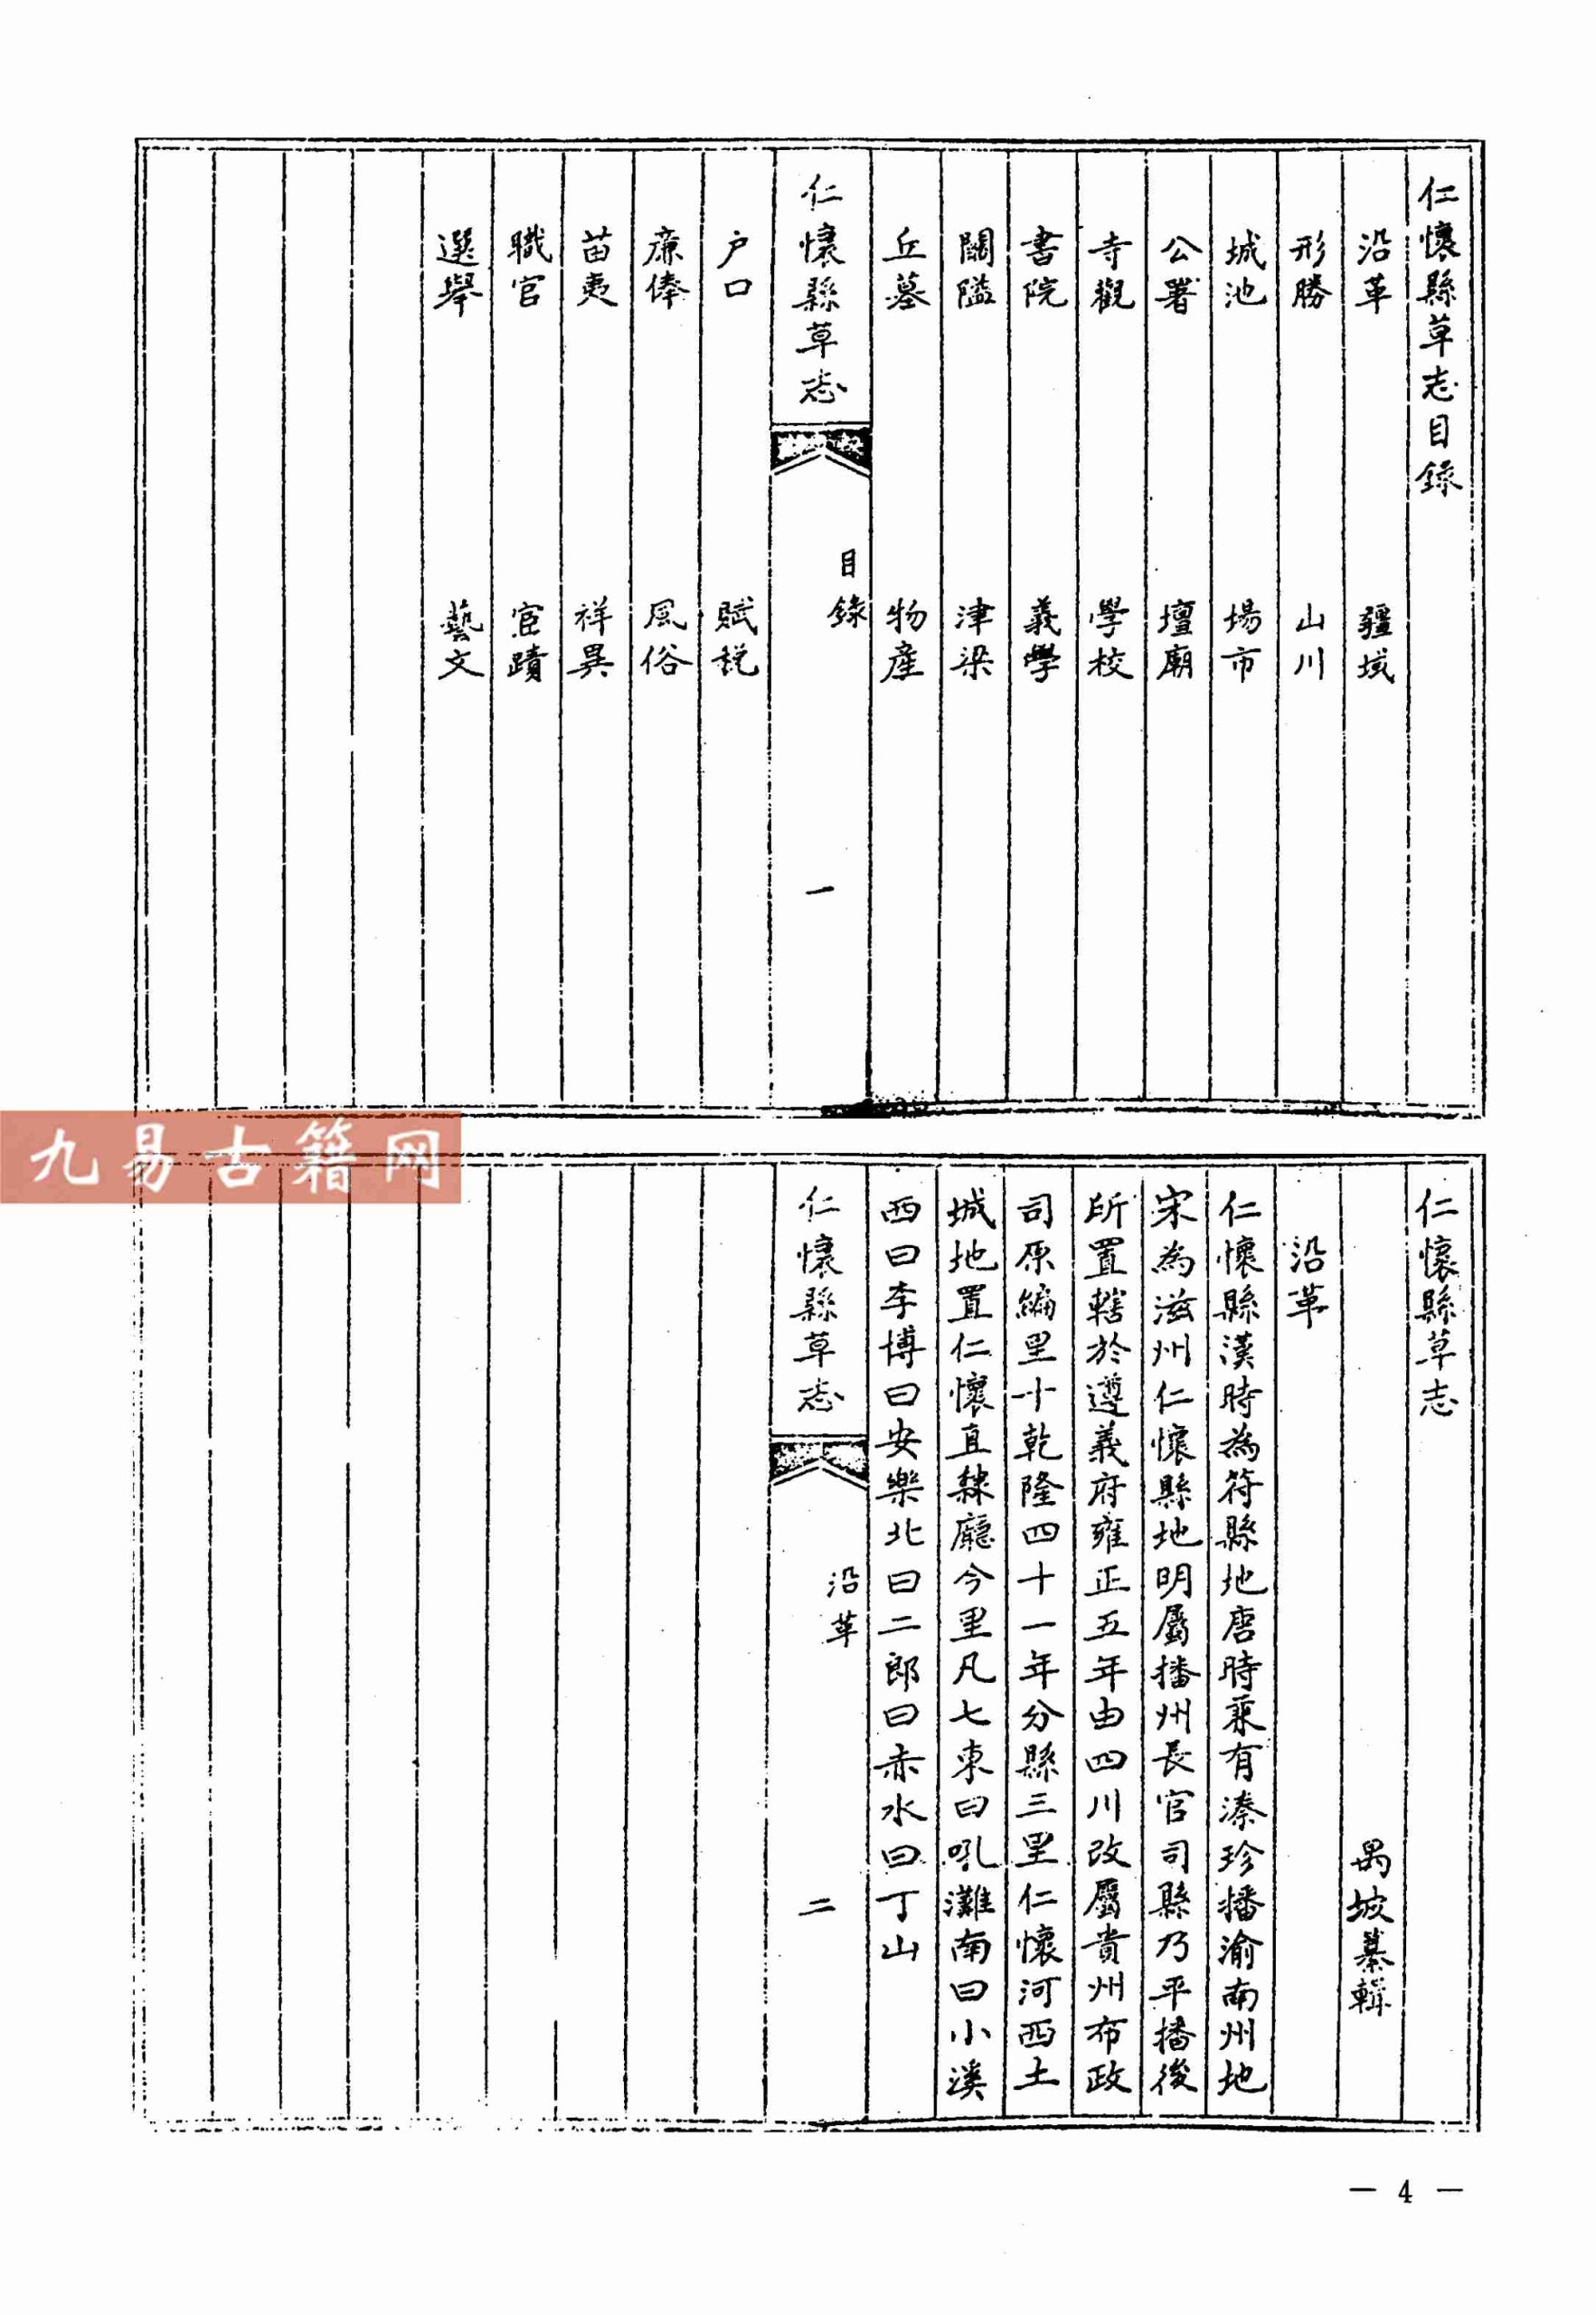 仁懷縣草志目錄
沿革 疆域
形勝 山川
城池 場市
公署 壇廟
寺觀 學校
書院 義學
關隘 津梁
丘墓 物產
仁懷縣草志 目錄 一
户口 賦稅
廉俸 風俗
苗夷 祥異
職官 宦蹟
選舉 藝文
九易古籍网
仁懷縣草志
禺坡纂輯
沿革
仁懷縣漢時為符縣地唐時兼有溱珍播渝南州地
宋為滋州仁懷縣地明屬播州長官司縣乃平播後
所置轄於遵義府雍正五年由四川改屬貴州布政
司原編里十乾隆四十一年分縣三里仁懷河西土
城地置仁懷直隸廳今里凡七東曰吼灘南曰小溪
西曰李博曰安樂北曰二郎曰赤水曰丁山
仁懷縣草志 沿革 二
— 4 —